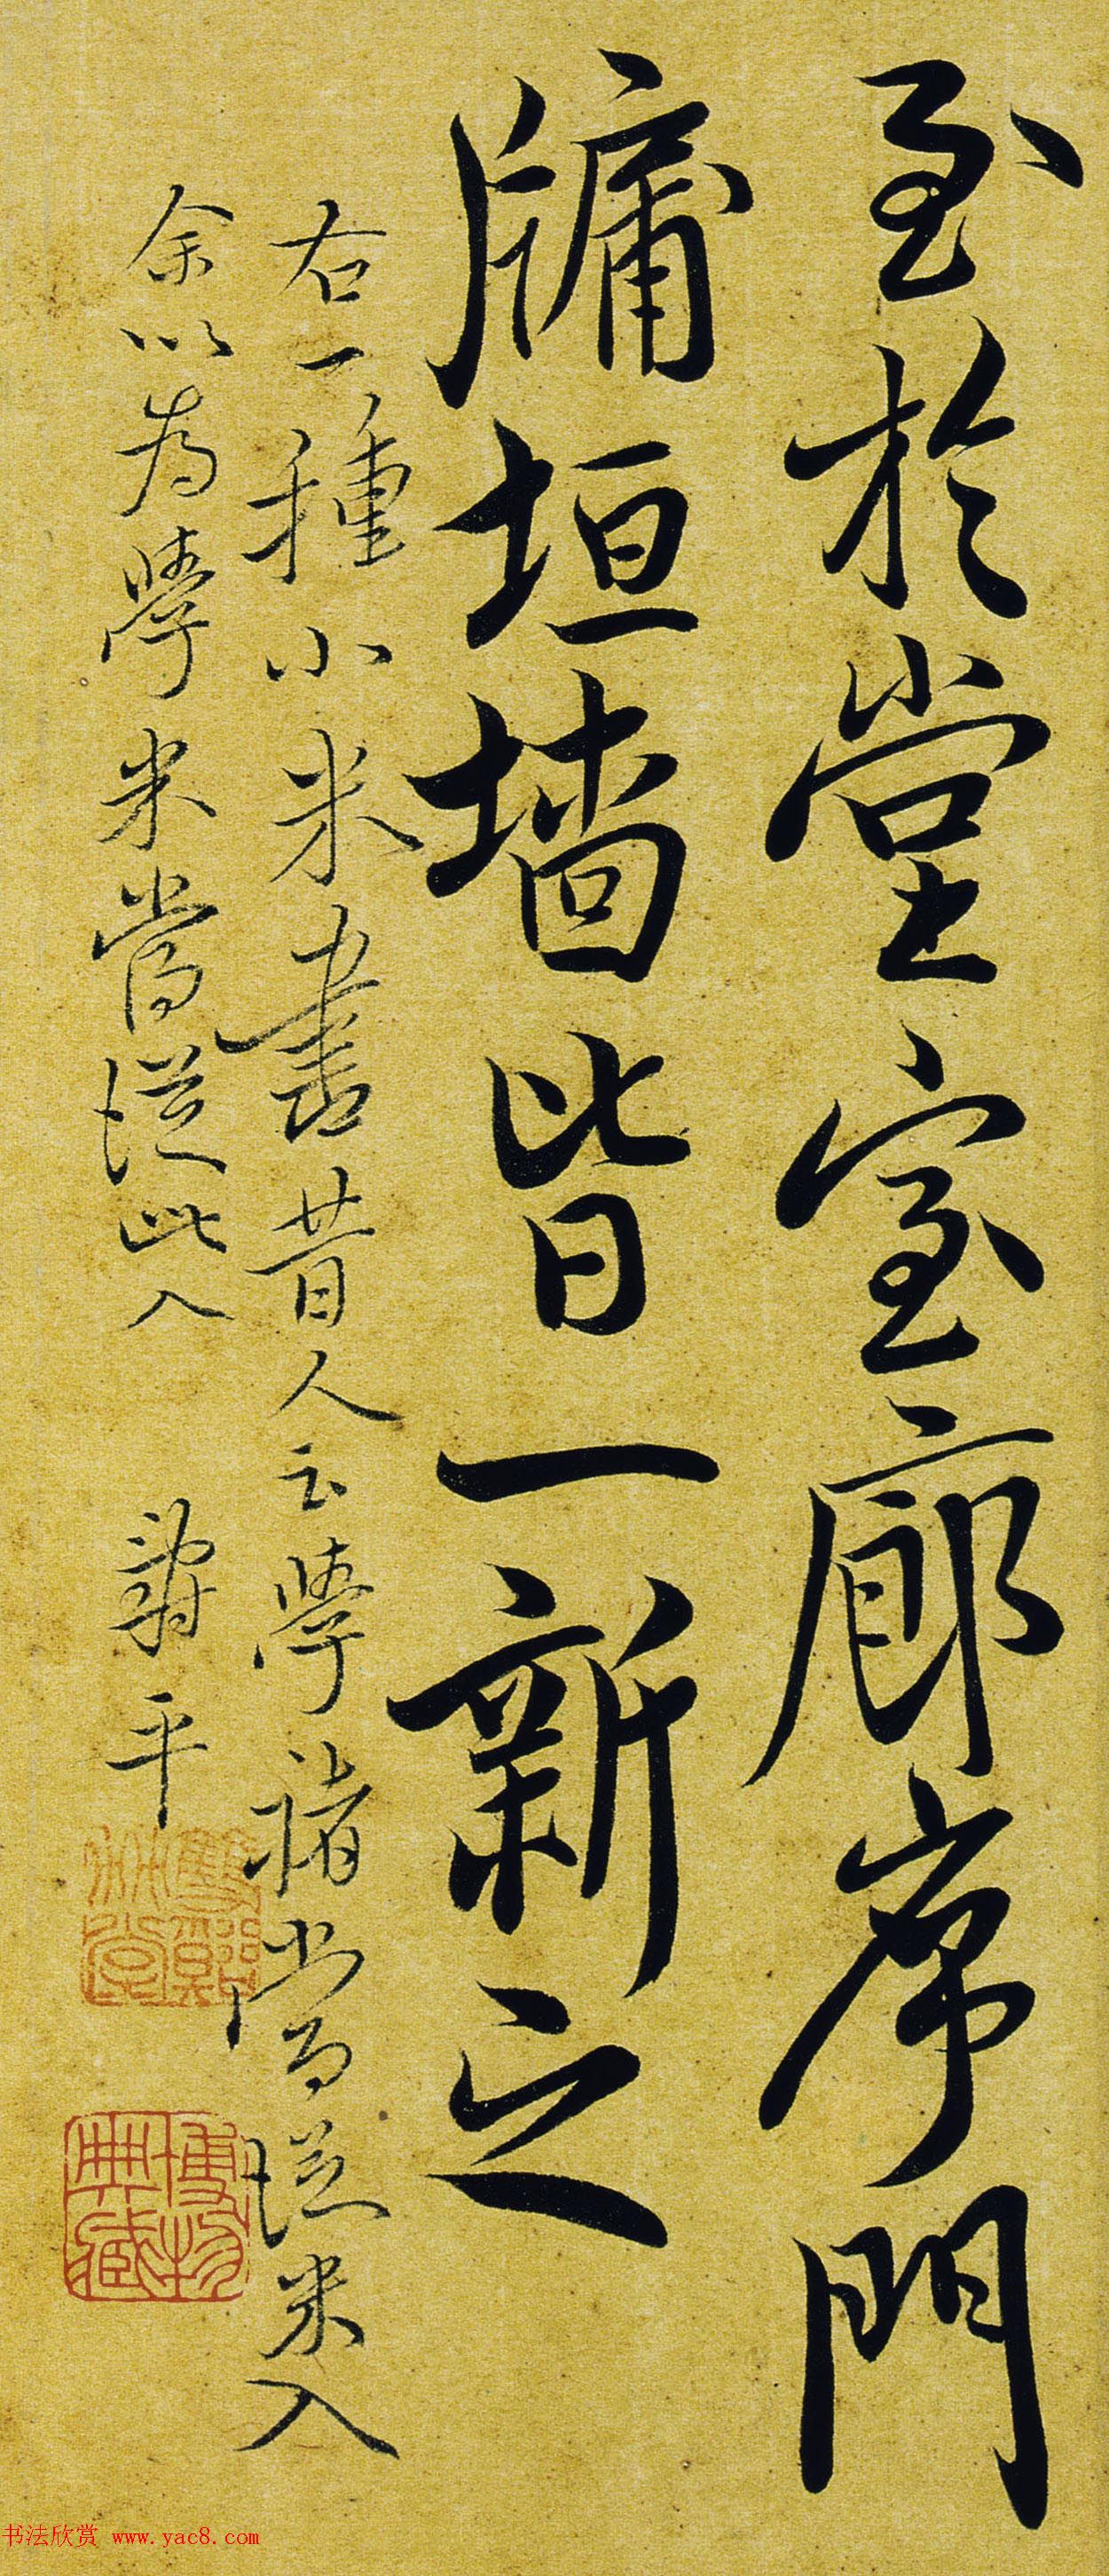 至於堂室廊席門
牖垣墙皆一新之
右一種小米書昔人云學褚當從米入
余以為學米當從此入
翁平
博物
典藏
书法欣赏 www.yac8.com